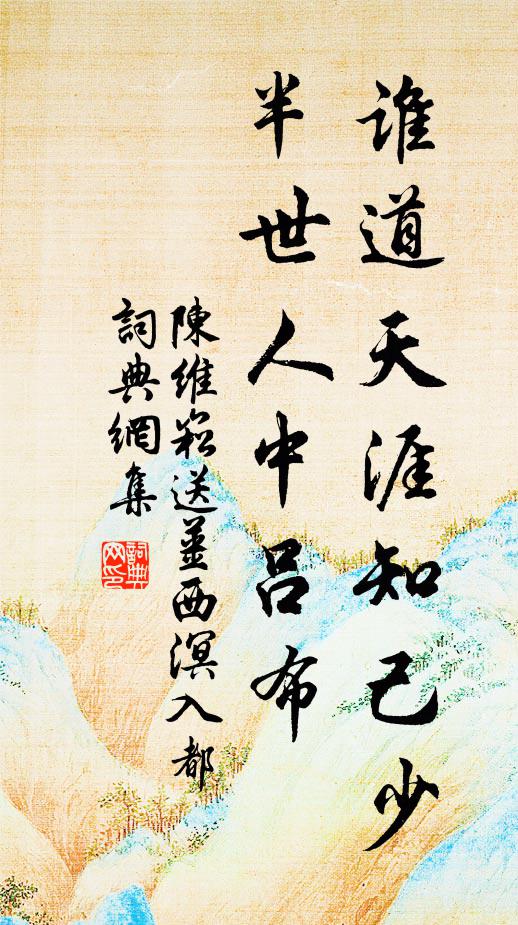 誰道天涯知己少
半世人中呂布
陳維崧送姜西溟入都
詞典網集
詞典
网印